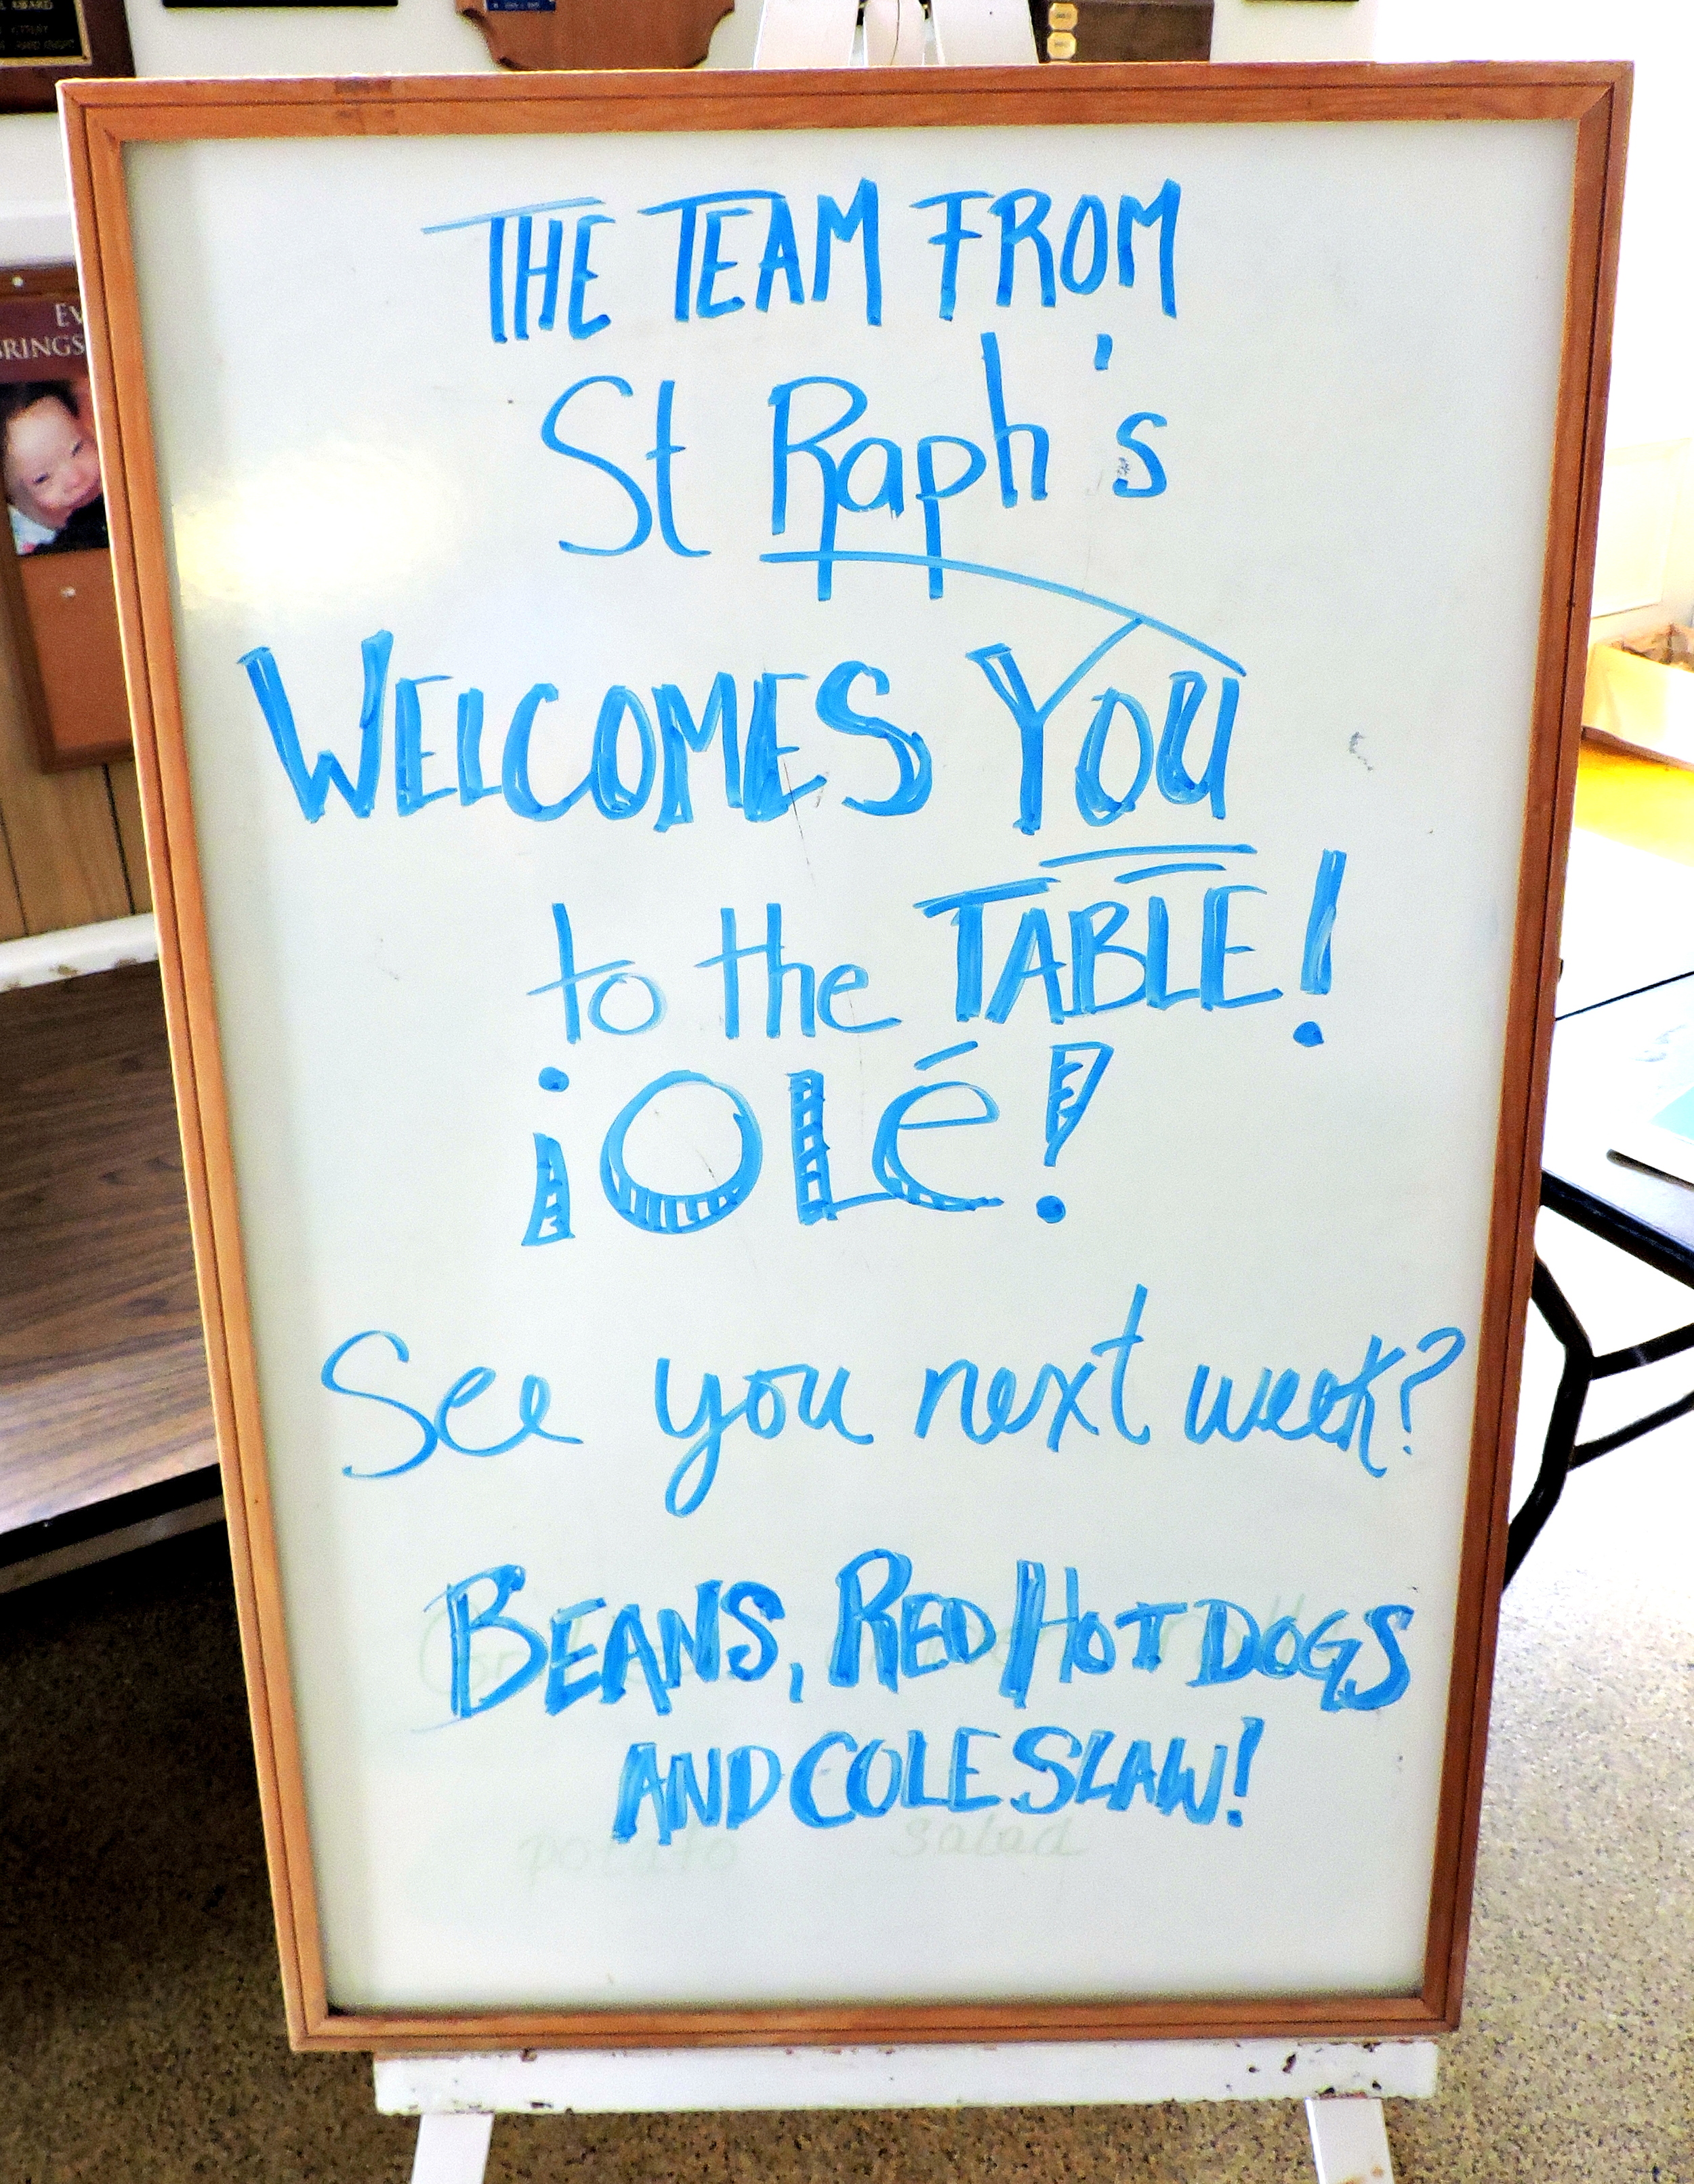 L AWARD
EV
BRINGS
THE TEAM FROM
St Raph's
WELCOMES YOU
to the TABLE!
¡OLé!
See you next week?
BEANS, RED HOT DOGS
AND COLE SLAW!
potato salad